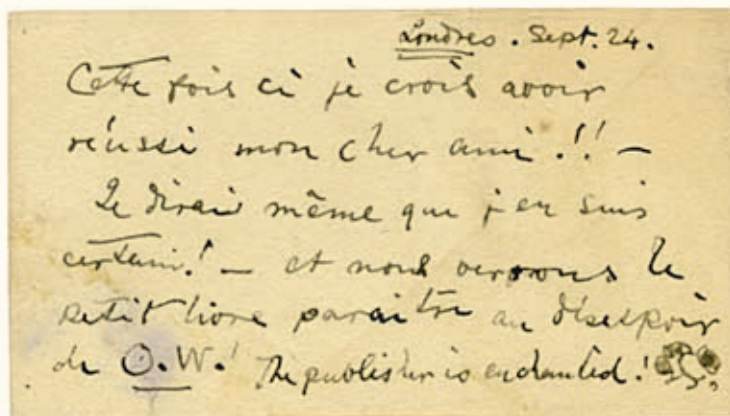 Londres. Sept. 24.
Cette fois ci je crois avoir
réussi mon cher ami!! —
Je dirai même que j'en suis
certain! — et nous verrons le
petit livre paraitre au désespoir
de O.W.! The publisher is enchanted!